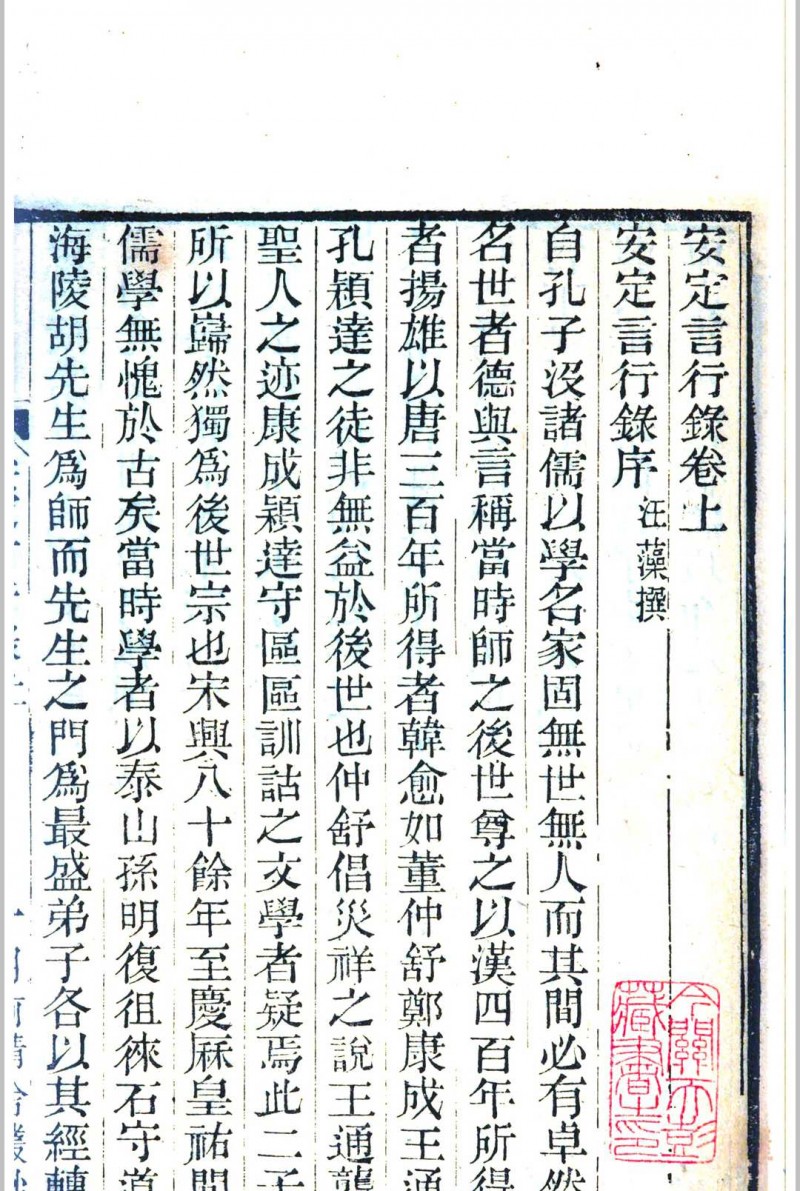 安定言行錄卷上
安定言行錄序
汪藻撰
自孔子沒諸儒以學名家固無世無人而其間必有卓然
名世者德與言稱當時師之後世尊之以漢四百年所得
者揚雄以唐三百年所得者韓愈如董仲舒鄭康成王通
孔穎達之徒非無益於後世也仲舒倡災祥之說王通龍
聖人之迹康成穎達守區區訓詁之文學者疑焉此二子
所以巋然獨爲後世宗也宋興八十餘年至慶厤皇祐間
儒學無愧於古矣當時學者以泰山孫明復徂徠石守道
海陵胡先生爲師而先生之門爲最盛弟子各以其經轉
今關天彭
藏書之印